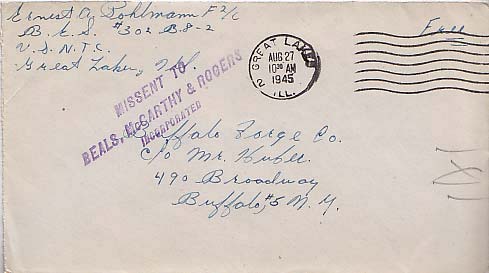 Ernest O. Pohlmann F 2/c
B.E.S. #302 B-8-2
U.S.N.T.C.
Great Lakes, Ill.
Free
GREAT LAKES
2
AUG 27
10 30 AM
1945
ILL.
MISSENT TO
BEALS, McCARTHY & ROGERS
INCORPORATED
Buffalo Forge Co.
c/o Mr. Huber
490 Broadway
Buffalo, #5 N.Y.